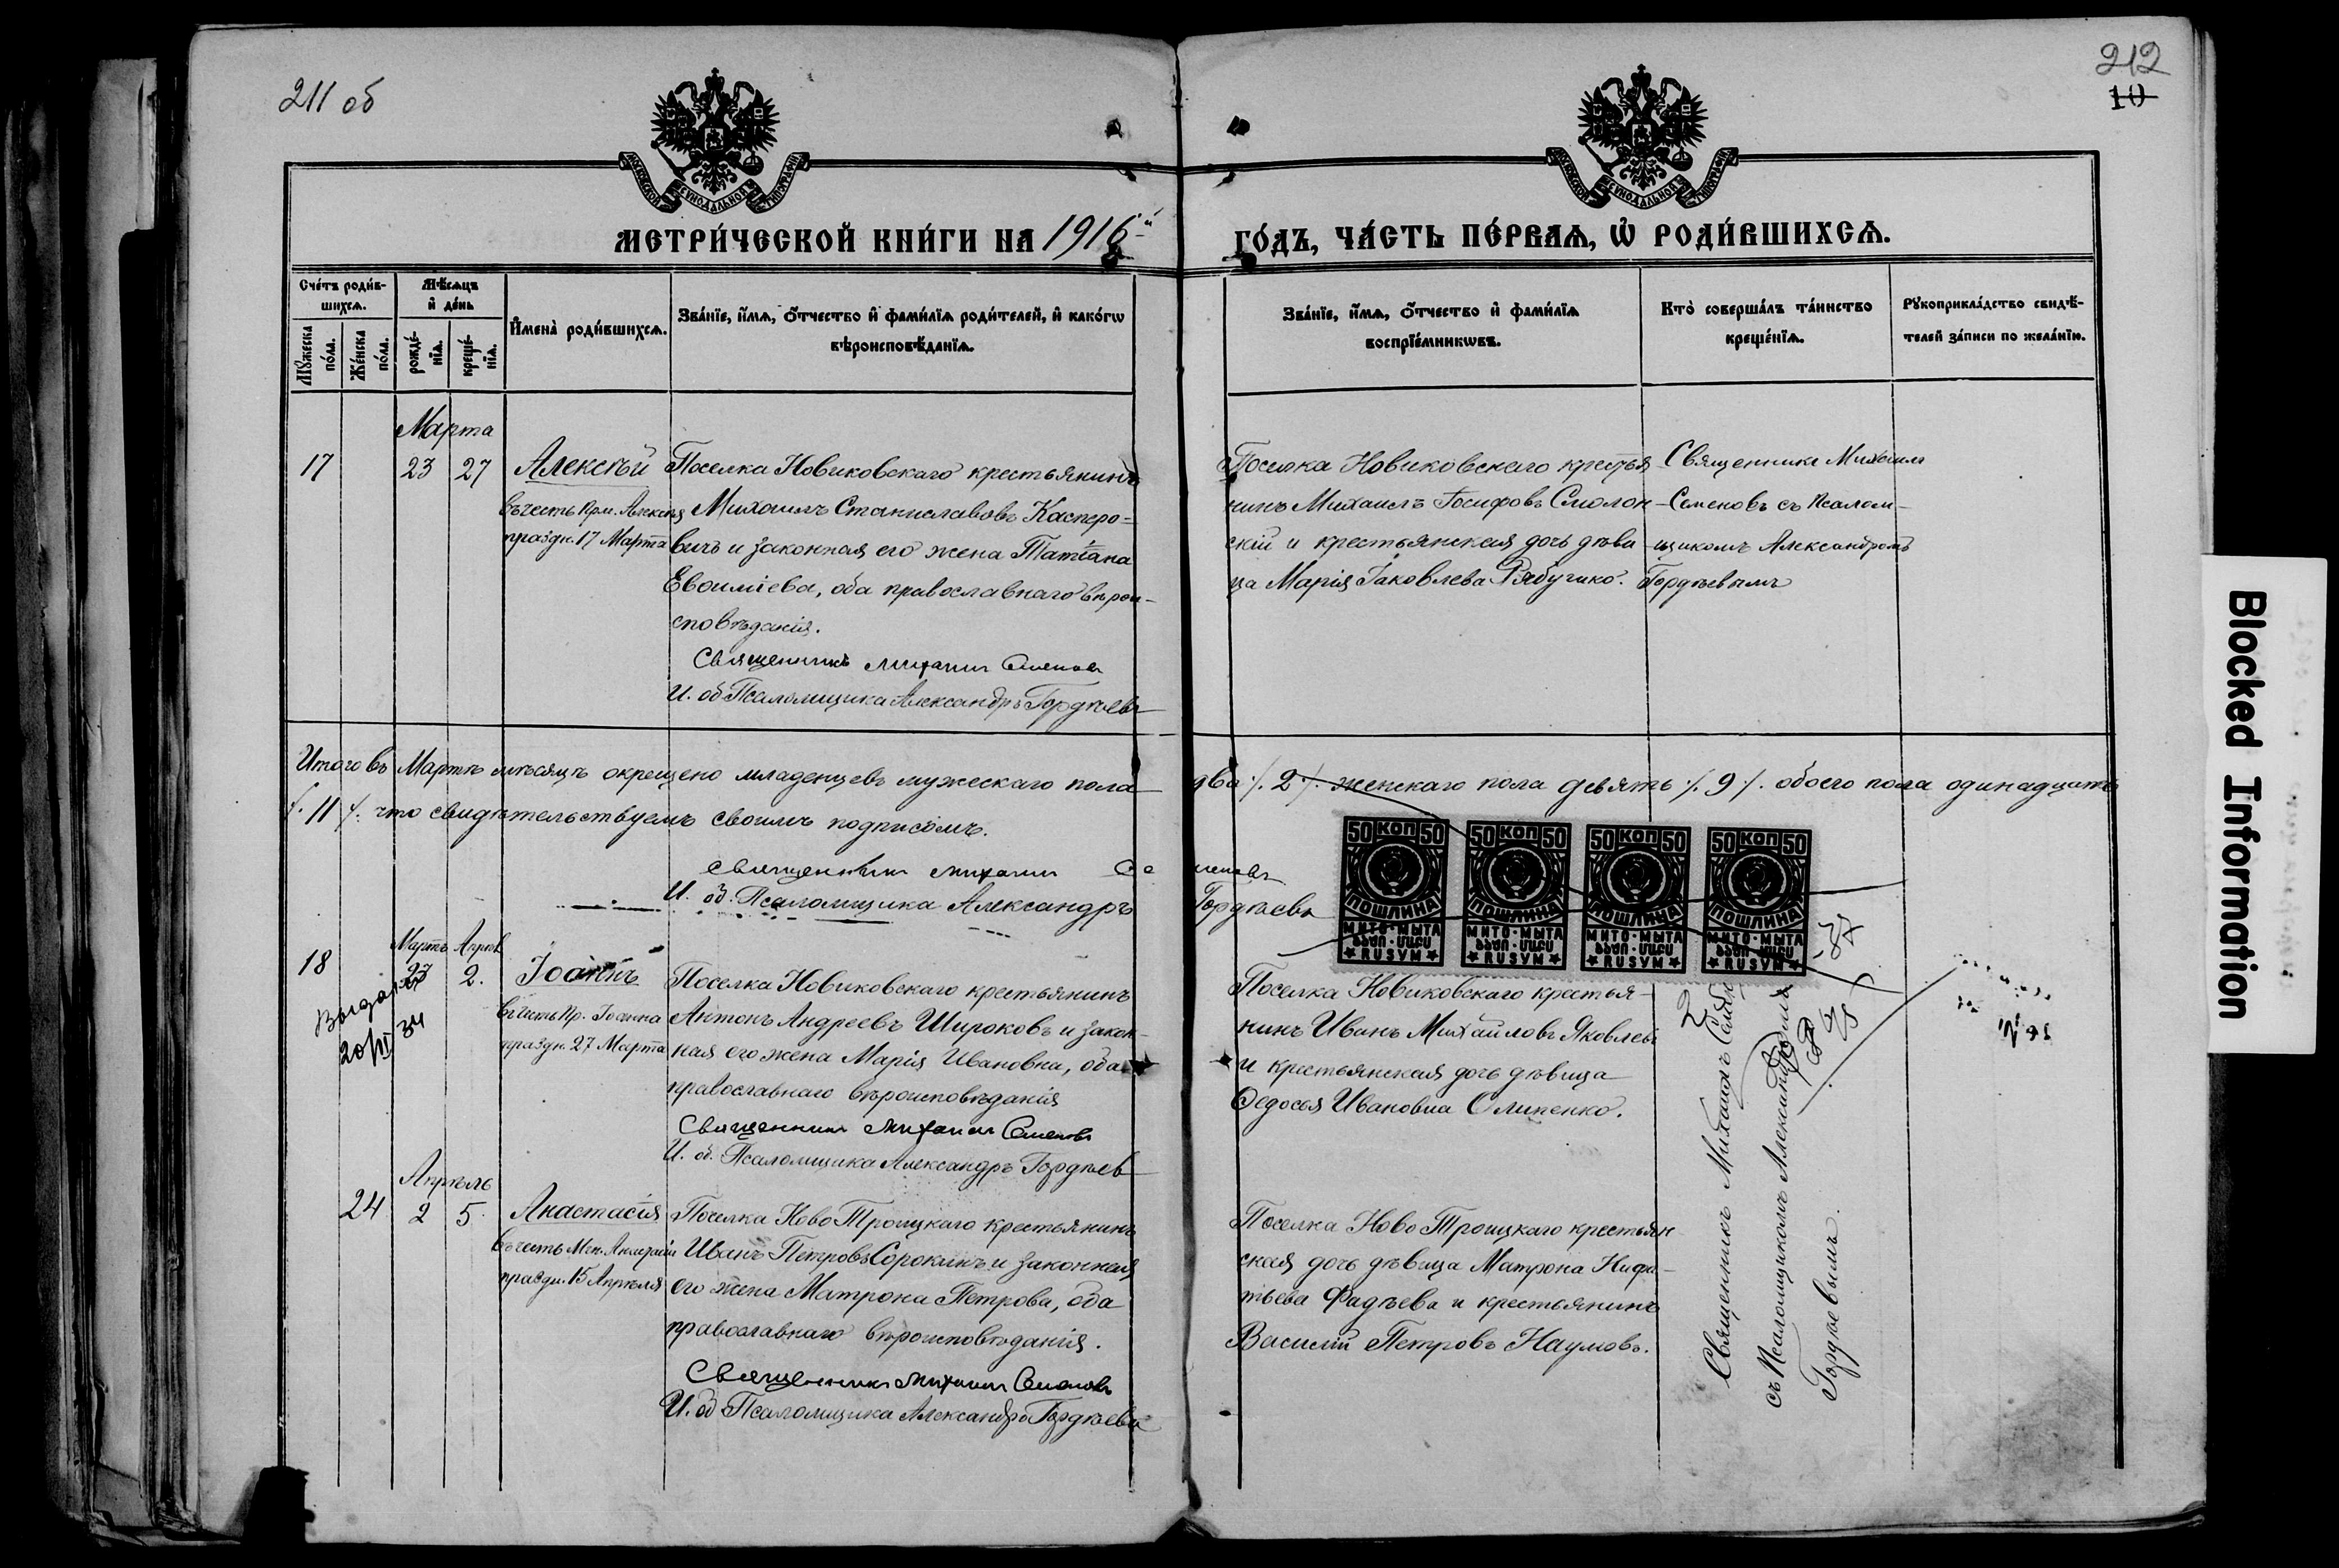 211 об
212
10
МОСКОВСКОЙ СѴНОДАЛЬНОЙ ТИПОГРАФІИ
МОСКОВСКОЙ СѴНОДАЛЬНОЙ ТИПОГРАФІИ
МЕТРИ́ЧЕСКОЙ КНИ́ГИ НА 1916й
ГО́ДЪ, ЧА́СТЬ ПЕ́РВАѦ, Ѡ РОДИ́ВШИХСѦ.
Сче́тъ роди́в-
шихсѧ.
Мѣ́сѧцъ
и҆ де́нь
Мꙋ́жеска
по́ла.
Же́нска
по́ла.
рожде́-
нїѧ.
креще́-
нїѧ.
И҆мена̀ роди́вшихсѧ.
Зва́нїе, и҆́мѧ, ѻ҆́тчество и҆ фами́лїѧ роди́телей, и҆ како́гѡ
вѣроисповѣ́данїѧ.
Зва́нїе, и҆́мѧ, ѻ҆́тчество и҆ фами́лїѧ
воспрїе́мникѡвъ.
Кто̀ соверша́лъ та́инство
креще́нїѧ.
Рꙋкоприкла́дство свидѣ́-
телей за́писи по жела́нїю.
Марта
17 23 27 Алексѣй
въ честь Прп. Алексѣя
праздн. 17 Марта
Поселка Новиковскаго крестьянинъ
Михаилъ Станиславовъ Касперо=
вичъ и законная его жена Татіана
Евѳиміева, оба православнаго вѣрои-
сповѣданія.
Священникъ Михаил Семенов
И. об Псаломщика Александръ Гордѣевъ
Поселка Новиковскаго крестья
нинъ Михаилъ Іосифовъ Смолон
скій и крестьянская дочь дѣви
ца Марія Іаковлева Рябучико.
Священникъ Михаилъ
Семеновъ съ Псалом-
щикомъ Александромъ
Гордѣевымъ
Итого въ Мартѣ мѣсяцѣ окрещено младенцевъ мужескаго пола два ·/. 2 ·/. женскаго пола девять ·/. 9 ·/. обоего пола одинадцать
·/. 11 ·/. что свидѣтельствуемъ своимъ подписомъ.
Священникъ Михаил Семеновъ
И. об. Псаломщика Александръ Гордѣевъ
50 КОП 50
ПОШЛИНА
МИТО · МЫТА
RUSYM
50 КОП 50
ПОШЛИНА
МИТО · МЫТА
RUSYM
50 КОП 50
ПОШЛИНА
МИТО · МЫТА
RUSYM
50 КОП 50
ПОШЛИНА
МИТО · МЫТА
RUSYM
Мартъ Апрѣль
18 27 2. Іоаннъ
въ честь Пр. Іоанна
праздн. 27 Марта
Поселка Новиковскаго крестьянинъ
Антонъ Андреевъ Широковъ и закон-
ная его жена Марія Ивановна, оба
православнаго вѣроисповѣданія
Священникъ Михаил Семеновъ
И. об. Псаломщика Александръ Гордѣев
Поселка Новиковскаго крестья-
нинъ Иванъ Михайловъ Яковлевъ
и крестьянская дочь дѣвица
Ѳедосья Ивановна Олипенко.
Апрѣль
24 2 5 Анастасія
въ честь Мч. Анастасіи
праздн. 15 Апрѣля
Поселка Ново Троицкаго крестьянинъ
Иванъ Петровъ Сорокинъ и законная
его жена Матрона Петрова, оба
православнаго вѣроисповѣданія.
Священникъ Михаил Семеновъ
И. об Псаломщика Александръ Гордѣевъ
Поселка Ново Троицкаго крестьян
ская дочь дѣвица Матрона Нифа-
тьева Фадѣева и крестьянинъ
Василій Петровъ Наумовъ.
Священникъ Михаилъ
съ Псаломщикомъ Александромъ
Гордѣевымъ.
Blocked Information